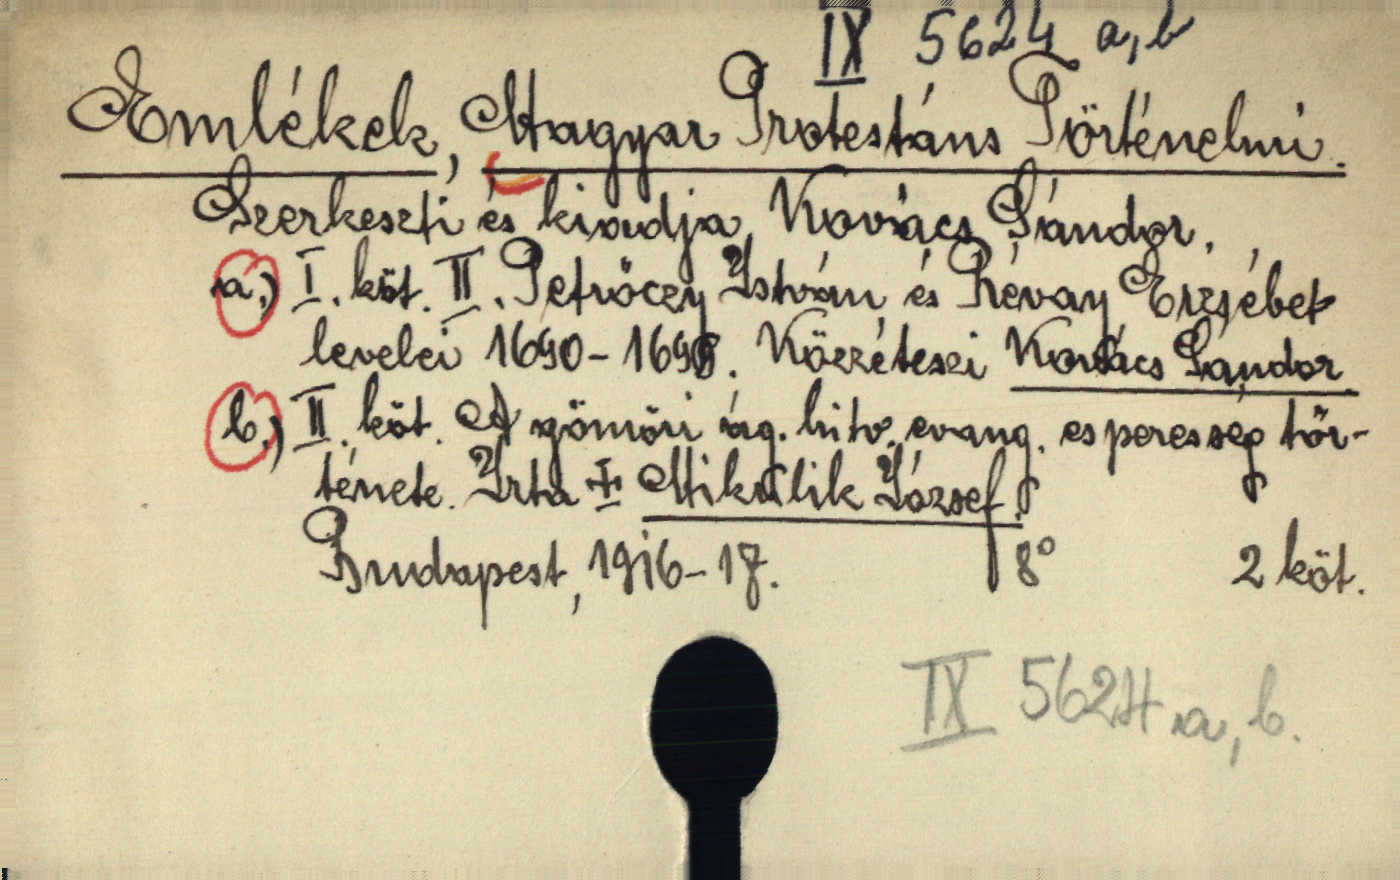 IX 5624 a, b
Emlékek, Magyar Protestáns Történelmi.
Szerkeszti és kiadja Kovács Sándor.
a.) I. köt. II. Petrőczy István és Révay Erzsébet
levelei 1690-1698. Közzéteszi Kovács Sándor.
b.) II. köt. A gömöri ág. hitv. evang. esperesség tör-
ténete. Irta † Mikulik József.
Budapest, 1916-17. 8° 2 köt.
IX 5624 a, b.